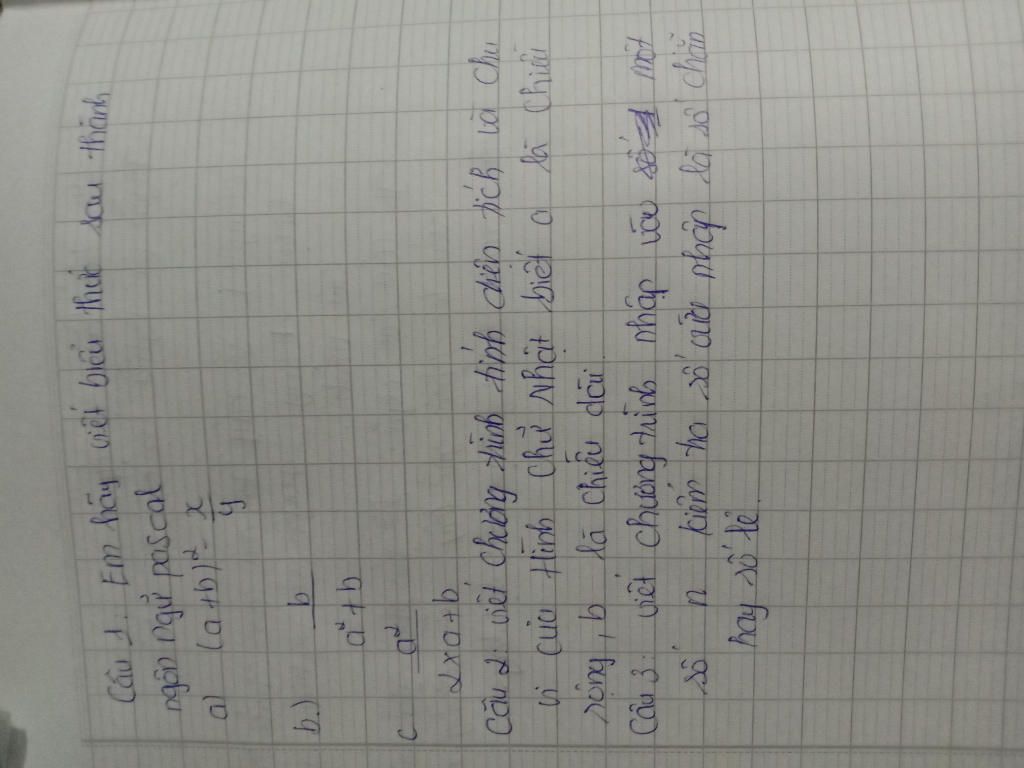 Câu 1: Em hãy viết biểu thức sau thành
ngôn ngữ pascal
a) (a+b)² - x/y
b.) b/(a²+b)
c a²/(2xa+b)
Câu 2: viết chương trình tính diện tích và chu
vi của hình chữ nhật biết a là chiều
rộng, b là chiều dài.
Câu 3: viết chương trình nhập vào một
số n kiểm tra số vừa nhập là số chẵn
hay số lẻ.